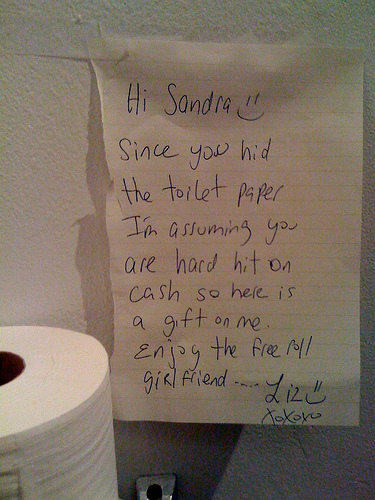 Hi Sandra
Since you hid
the toilet paper
I'm assuming you
are hard hit on
cash so here is
a gift on me.
Enjoy the free roll
girlfriend.....
Liz
xoxoxo